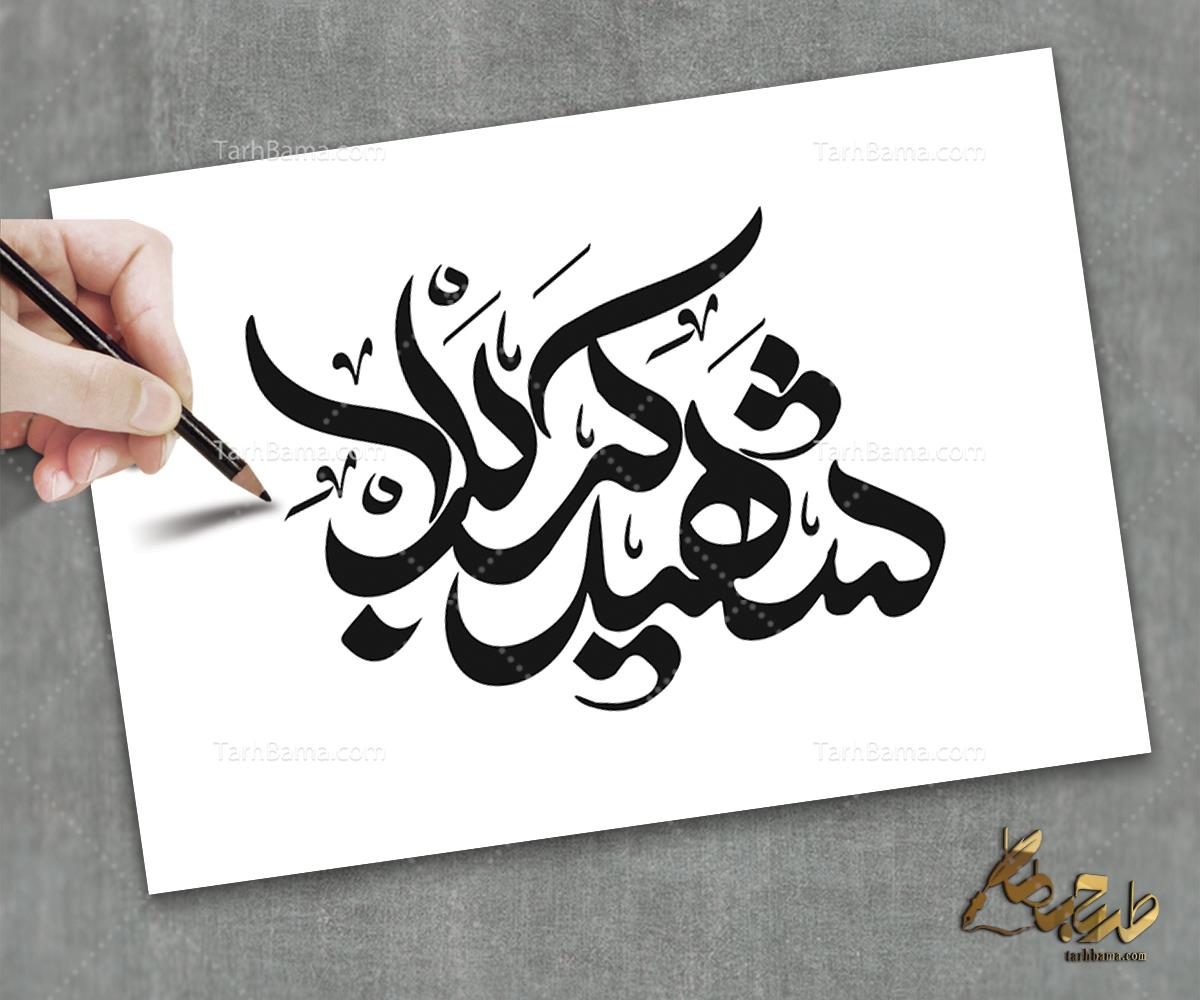 TarhBama.com TarhBama.com
شهید کربلا
TarhBama.com TarhBama.com
TarhBama.com TarhBama.com
طرح با ما
tarhbama.com